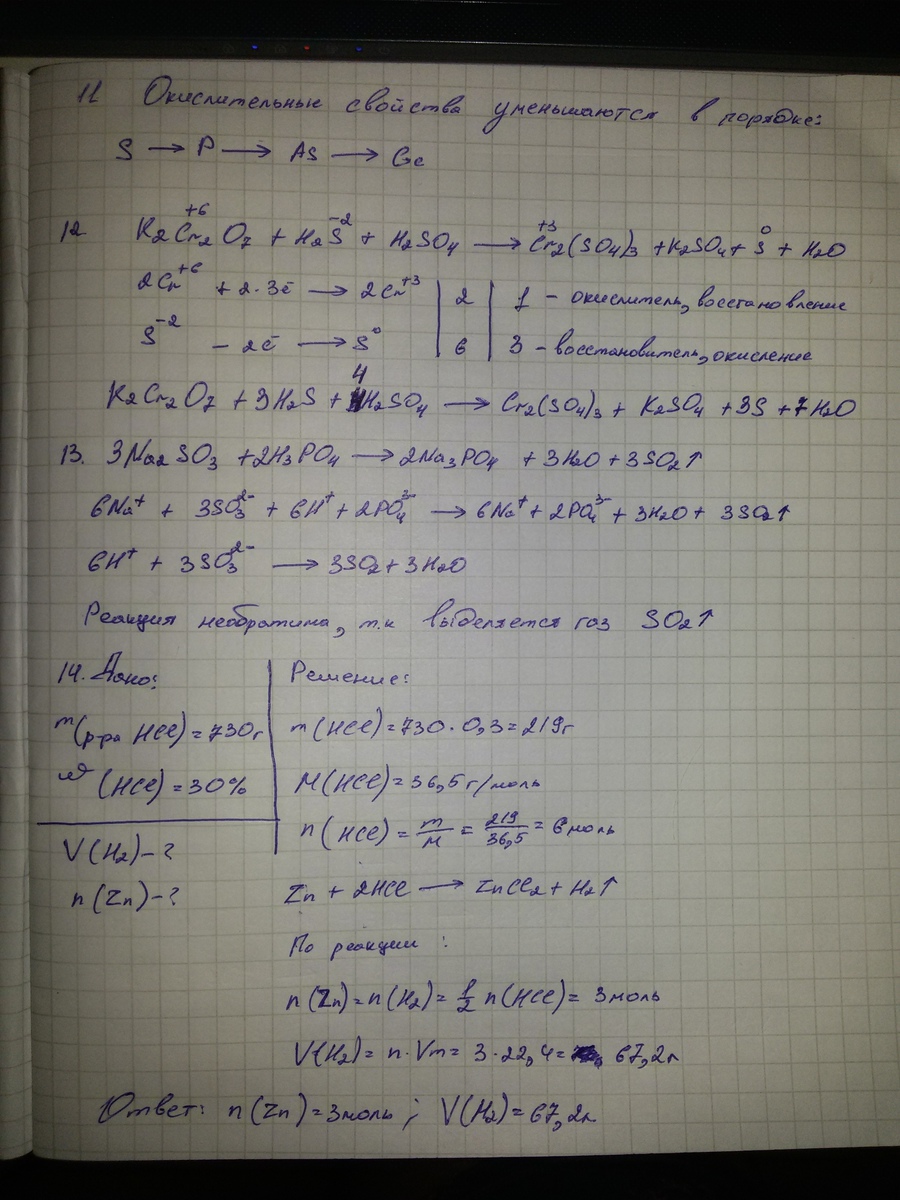 11 Окислительные свойства уменьшаются в порядке:
S → P → As → Ge
12 K2Cr2O7 + H2S + H2SO4 → Cr2(SO4)3 + K2SO4 + S + H2O
+6 -2 +3 0
2Cr+6 + 2·3ē → 2Cr+3 | 2 | 1 - окислитель, восстановление
S-2 - 2ē → S0 | 6 | 3 - восстановитель, окисление
K2Cr2O7 + 3H2S + 4H2SO4 → Cr2(SO4)3 + K2SO4 + 3S + 7H2O
13. 3Na2SO3 + 2H3PO4 → 2Na3PO4 + 3H2O + 3SO2↑
6Na+ + 3SO3 2- + 6H+ + 2PO4 3- → 6Na+ + 2PO4 3- + 3H2O + 3SO2↑
6H+ + 3SO3 2- → 3SO2 + 3H2O
Реакция необратима, т.к выделяется газ SO2↑
14. Дано:
m(р-ра HCl) = 730г
ω(HCl) = 30%
V(H2) - ?
n(Zn) - ?
Решение:
m(HCl) = 730 · 0,3 = 219г
M(HCl) = 36,5 г/моль
n(HCl) = m/M = 219/36,5 = 6моль
Zn + 2HCl → ZnCl2 + H2↑
По реакции:
n(Zn) = n(H2) = 1/2 n(HCl) = 3моль
V(H2) = n·Vm = 3·22,4 = 67,2л
Ответ: n(Zn) = 3моль; V(H2) = 67,2л